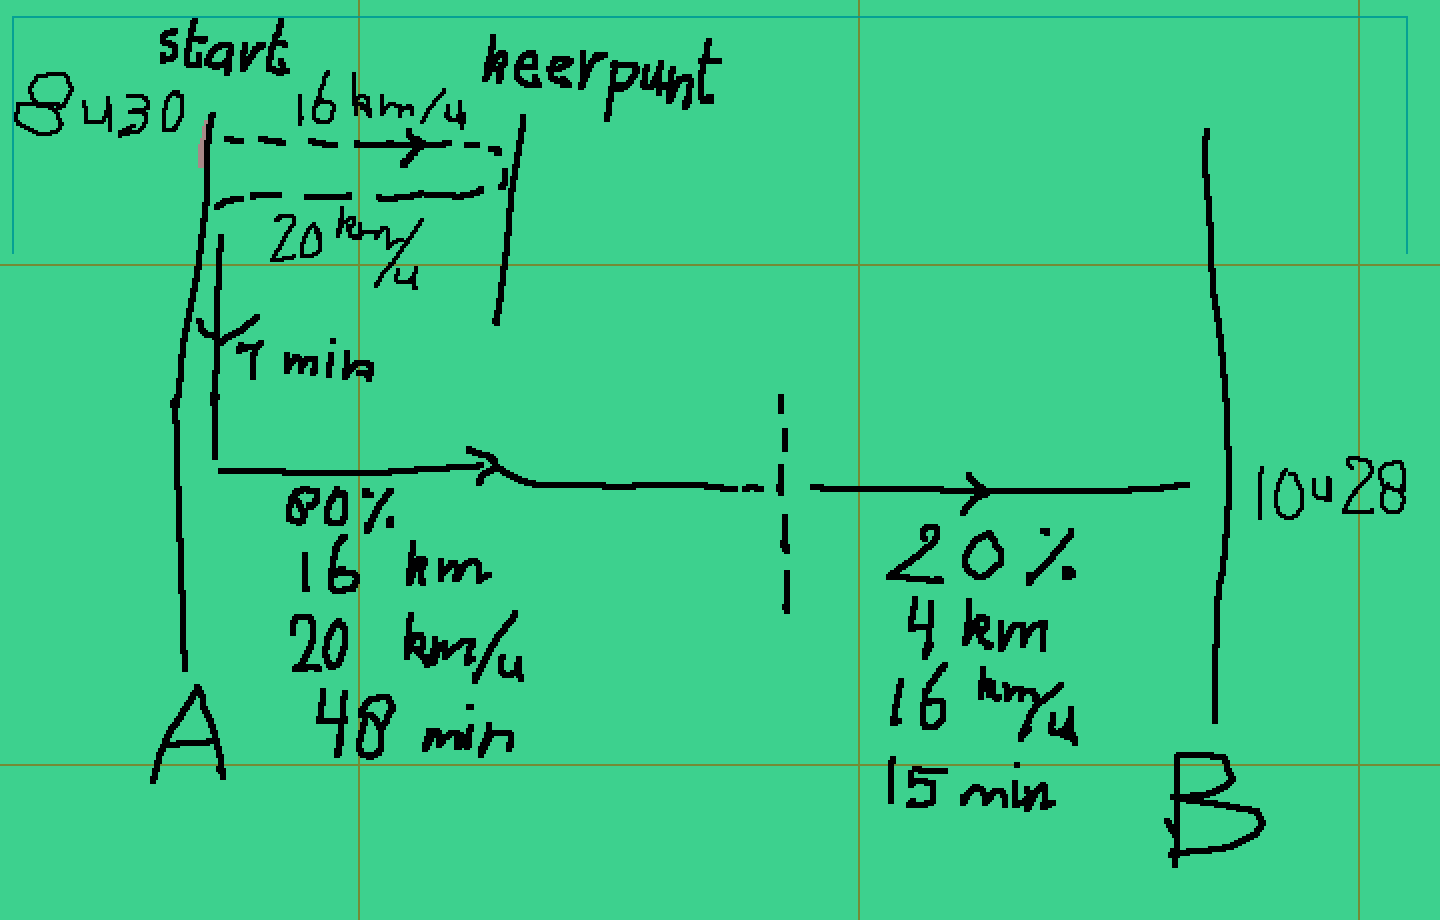 start
keerpunt
8u30
16 km/u
20 km/u
1 min
80%
16 km
20 km/u
48 min
20%
4 km
16 km/u
15 min
10u28
A
B